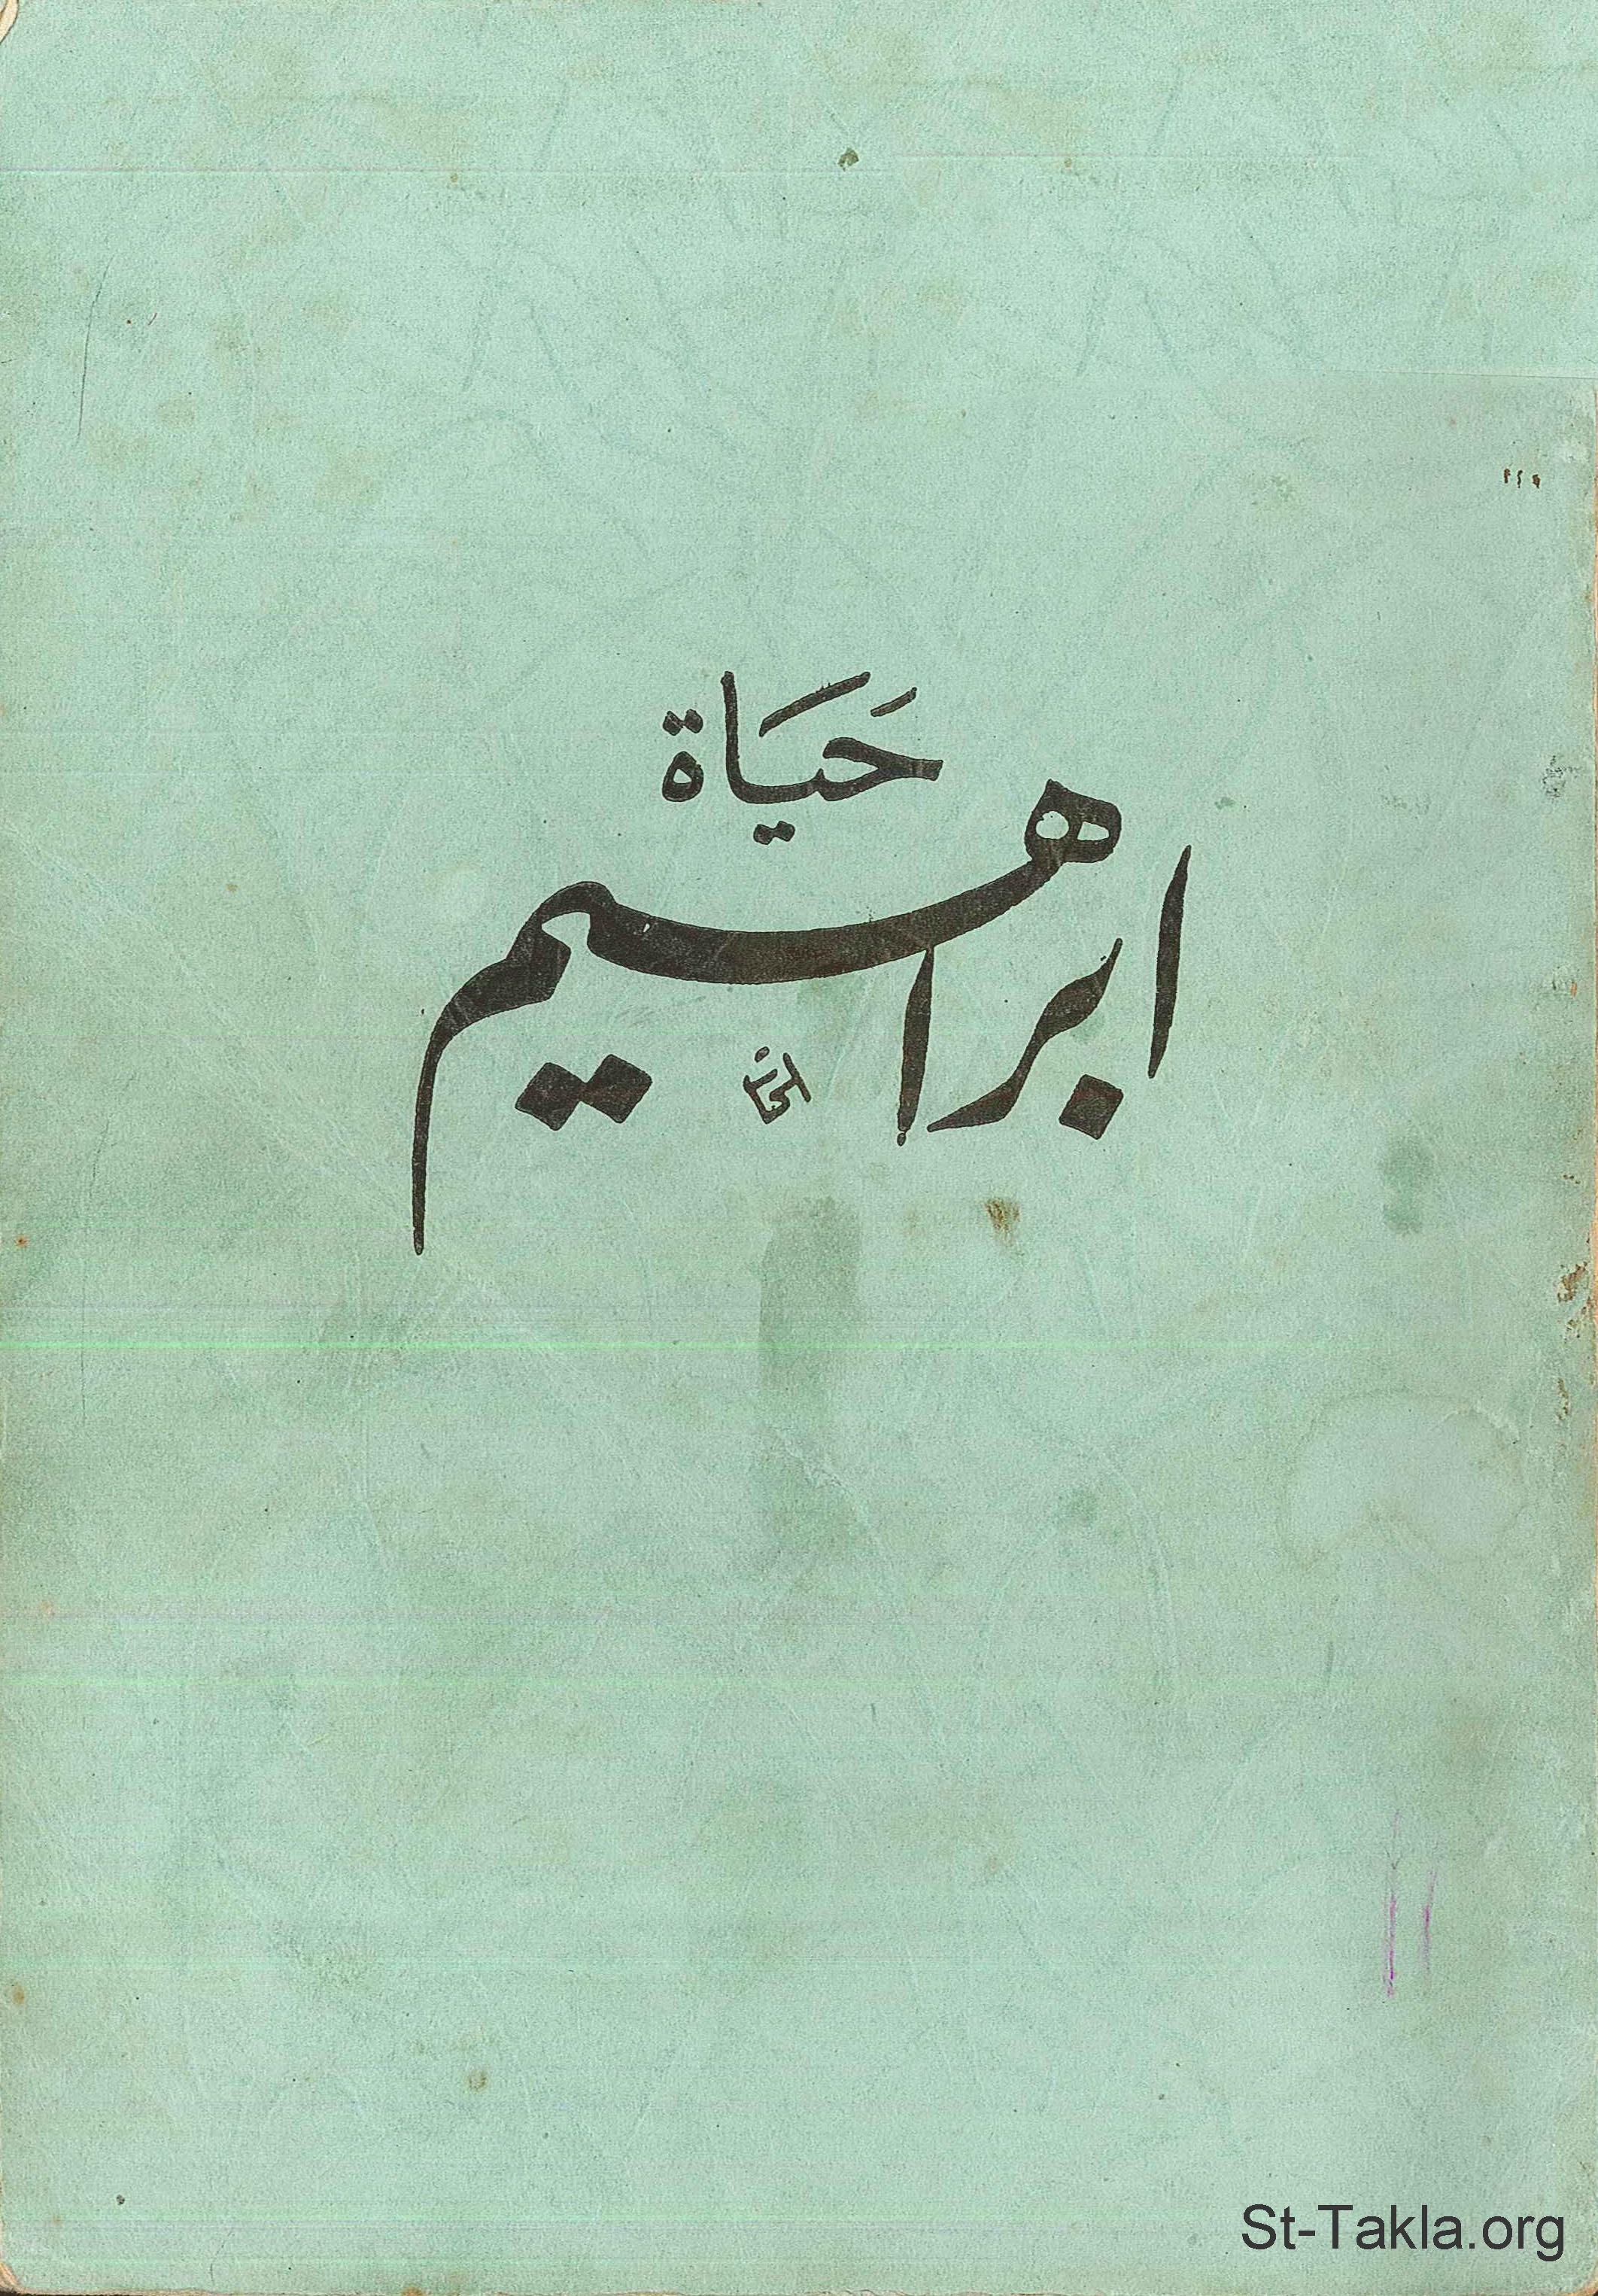 حَيَاة
ابراهيم
St-Takla.org